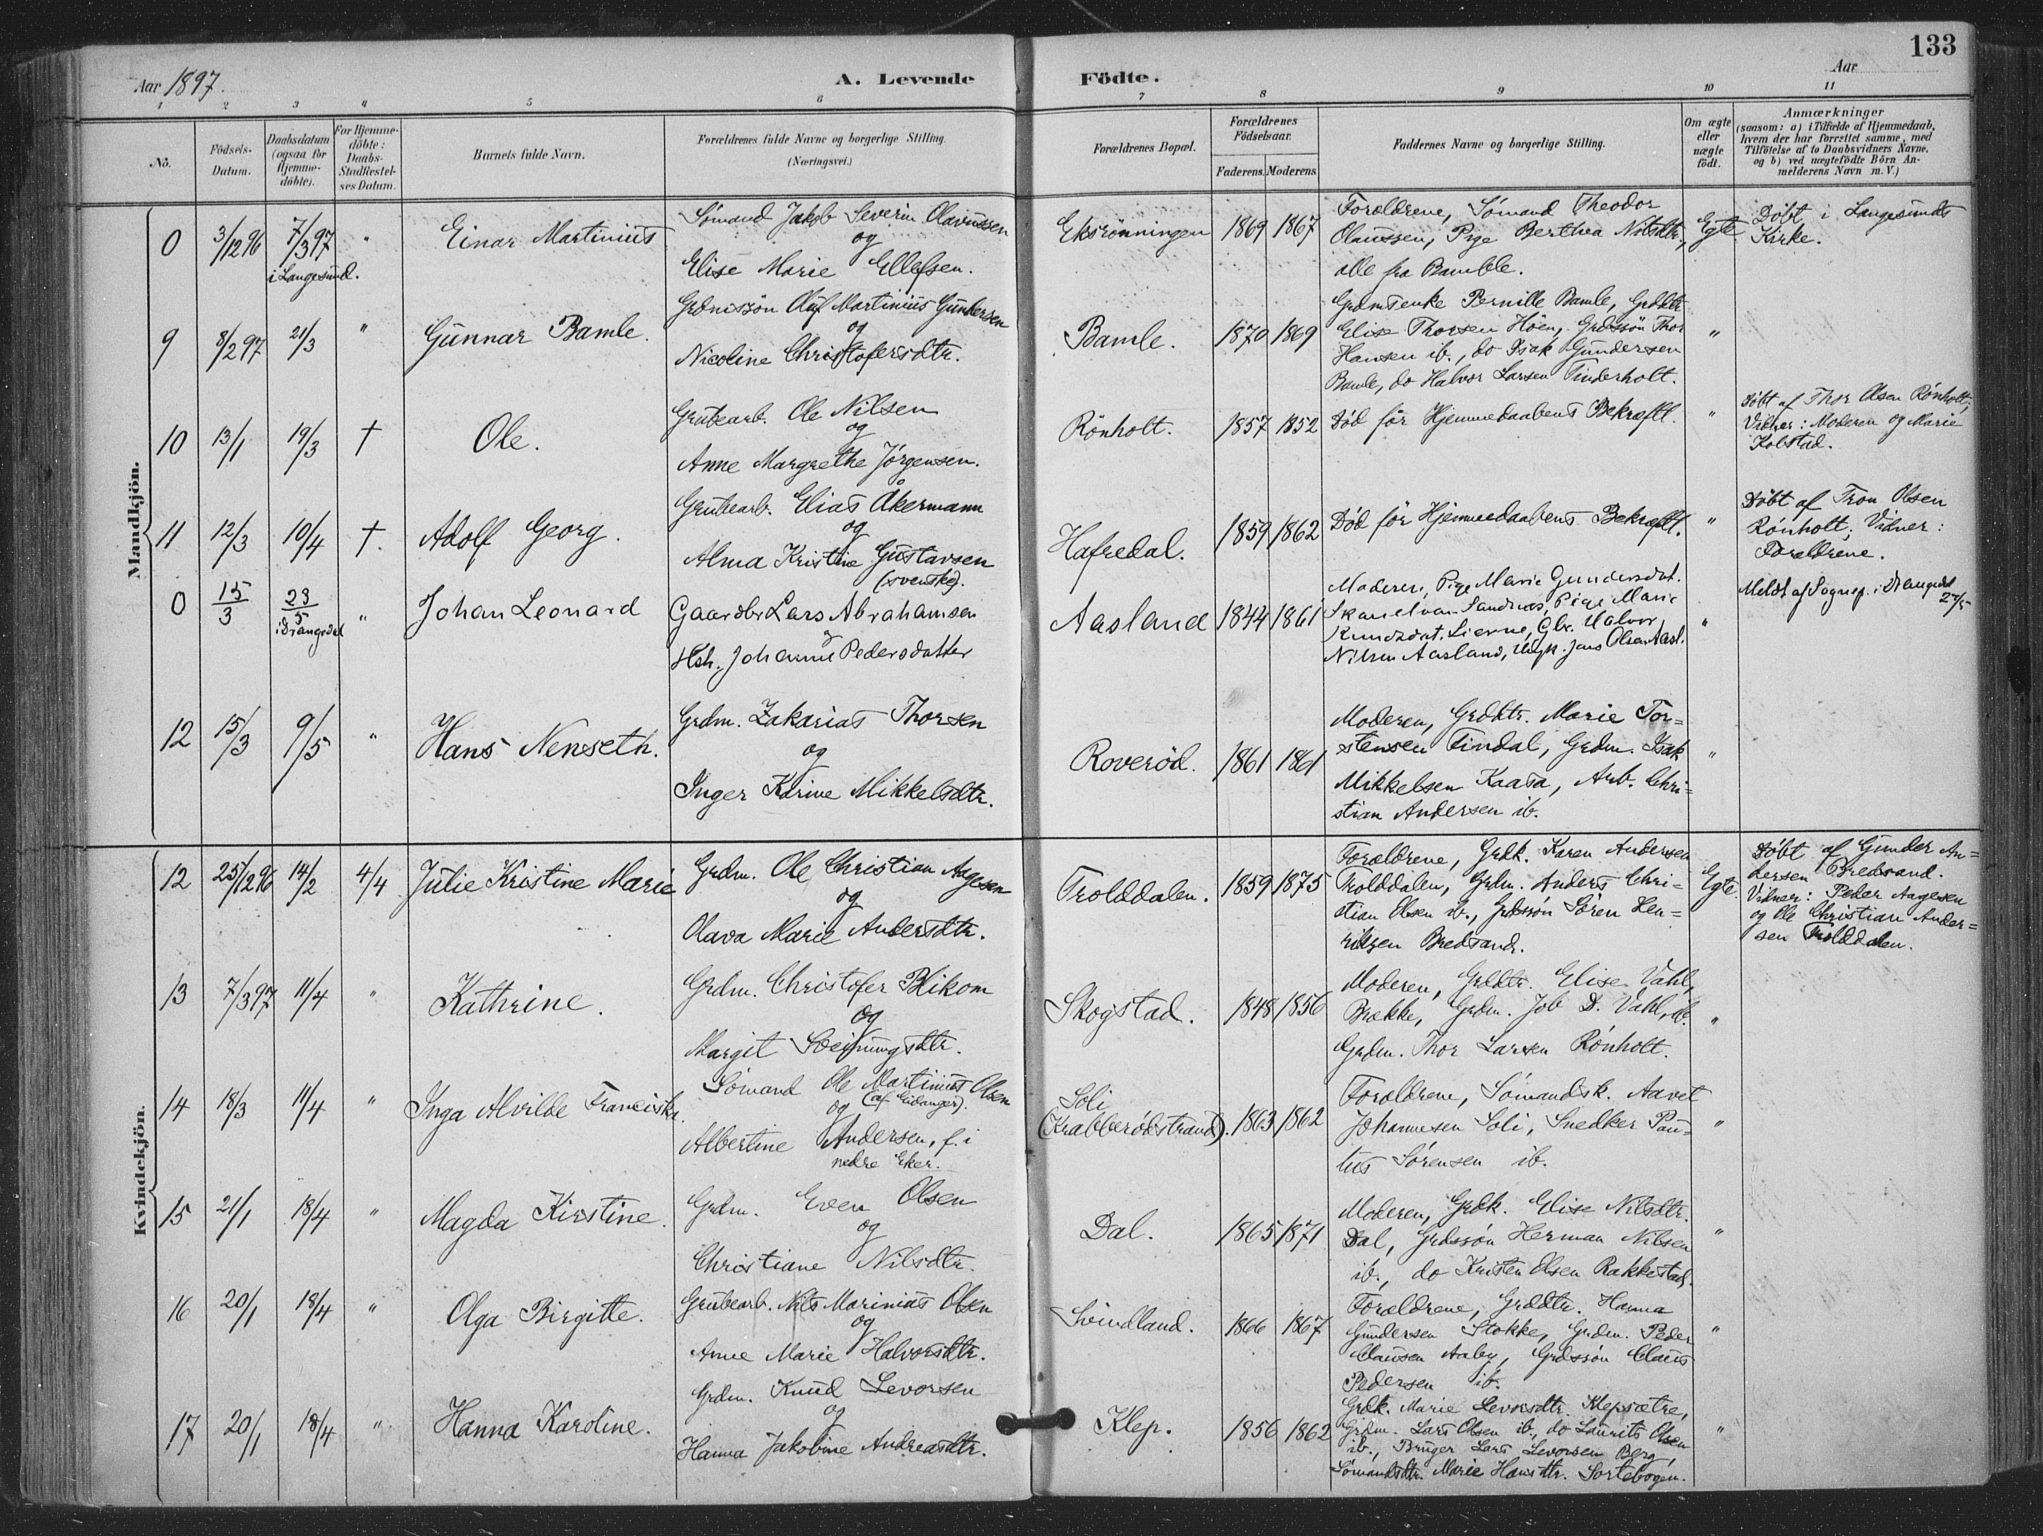 133
Aar 1897.
A. Levende Födte.
Aar
1 2 3 " 5 6 7 8 9 10 11
No.
Födsels-Datum.
Daabsdatum (ogsaa for Hjemme-döbte).
For Hjemme-döbte: Daabs-Stadfestel-ses Datum.
Barnets fulde Navn.
Forældrenes fulde Navne og borgerlige Stilling. (Næringsvei.)
Forældrenes Bopæl.
Forældrenes Födselsaar.
Faderens. Moderens.
Faddernes Navne og borgerlige Stilling.
Om ægte eller uægte födt.
Anmærkninger
(saasom: a) i Tilfælde af Hjemmedaab, hvem der har forrettet samme, med Tilföielse af to Daabsvidners Navne, og b) ved uægtefödte Börn An-melderens Navn m. V.)
Mandkjön.
0 3/12 96 7/3 97 i Langesund. " Einar Martinius
Sømand Jakob Severin Olavussen
og
Elise Marie Ellefsen.
Eksrönningen 1869 1867
Forældrene, Sømand Theodor
Olaussen, Pige Berthea Nilsdtr,
alle fra Bamble.
Egte
Döbt i Langesunds
Kirke.
9 8/2 97 21/3 " Gunnar Bamle.
Grdmssön Oluf Martinius Gundersen
og
Nicoline Christofersdtr.
Bamle. 1870 1869
Grdmsenke Pernille Bamle, Grddtr
Elise Thorsen Höen, Grdssön Thor
Hansen ib., do Isak Gundersen
Bamle, do Halvor Larsen Finderholt.
"
10 13/1 19/3 † Ole.
Grubearb. Ole Nilsen
og
Anne Margrethe Jörgensen.
Rönholt. 1857 1852
Död för Hjemmedaabens Bekræft.
"
Döbt af Thor Olsen Rönholt,
Vidner: Moderen og Marie
Kolstad.
11 12/3 10/4 †. Adolf Georg.
Grubearb. Elias Åkermann
og
Alma Kristine Gustavsen
(svenske).
Hafredal. 1859 1862
Död för Hjemmedaabens Bekræft.
"
Döbt af Tron Olsen
Rönholt; Vidner:
Forældrene.
0 15/3 23/5 i Drangedal " Johan Leonard
Gaardbr Lars Abrahamsen
og
Hsh. Johanne Pedersdatter
Aasland 1844 1861
Moderen, Pige Marie Gundersdat.
Sandnæs, Pige Marie
Knudsdat. Lierne, Gbr. Halvor
Nilsen Aasland, Jens Olsen Aasl.
"
Meldt af Sognep. i Drangedal
12 15/3 9/5 " Hans Nenseth.
Grdm. Zakarias Thorsen
og
Inger Karine Mikkelsdtr.
Roveröd. 1861 1861
Moderen, Grddtr. Marie Tor=
stensen Findal, Grdm. Isak
Mikkelsen Kaasa, Arb. Chri-
stian Andersen ib.
"
Kvindekjön.
12 25/12 96 14/2 4/4 Julie Kristine Marie
Grdm. Ole Christian Aagesen
og
Olava Marie Andersdtr.
Trolddalen. 1859 1875
Forældrene, Grdk. Karen Andersen
Trolddalen, Grdm. Anders Chri-
stian Olsen ib., Grdssön Sören Hen=
riksen Bredsand.
Egte
Döbt af Gunder An=
dersen Bredsand.
Vidner: Peder Aagesen
og Ole Christian Ander=
sen Trolddalen.
13 7/3 97 11/4 " Kathrine.
Grdm. Christofer Blikom
og
Margit Sveinungsdtr.
Skogstad. 1848 1856
Moderen, Grddtr. Elise Vahl,
Brække, Grdm. Job D. Vahl, ib.
Grdm. Thor Larsen Rönholt.
"
14 18/3 11/4 " Inga Alvilde Franciska.
Sømand Ole Martinius Olsen
og (af Eidanger).
Albertine Andersen, f. i
nedre Eker.
Soli
(Krabberödstrand). 1863 1862
Forældrene, Sømandsk. Aavet
Johannesen Soli, Snedker Pau-
lus Sörensen ib.
"
15 21/1 18/4 " Magda Kirstine.
Grdm. Even Olsen
og
Christiane Nilsdtr.
Dal. 1865 1871
Moderen, Grdk. Elise Nilsdtr.
Dal, Grdssön Herman Nilsen
ib., do Kristen Olsen Rakkestad.
"
16 20/1 18/4 " Olga Birgitte.
Grubearb. Nils Marinius Olsen
og
Anne Marie Halvorsdtr.
Svindland. 1866 1867
Forældrene, Grddtr. Hanna
Gundersen Stokke, Grdm. Peder
Clausen Aaby, Grdssön Claus
Pedersen ib.
"
17 20/1 18/4 " Hanna Karoline.
Grdm. Knud Levorsen
og
Hanna Jakobine Andreasdtr.
Klep. 1856 1862
Grdk. Marie Levorsdtr. Klepsætre,
Grdm. Lars Olsen ib., do Laurits Olsen
ib., Bruger Lars Levorsen Berg,
Sømandsdtr. Marie Hansdtr. Sortebogen.
"